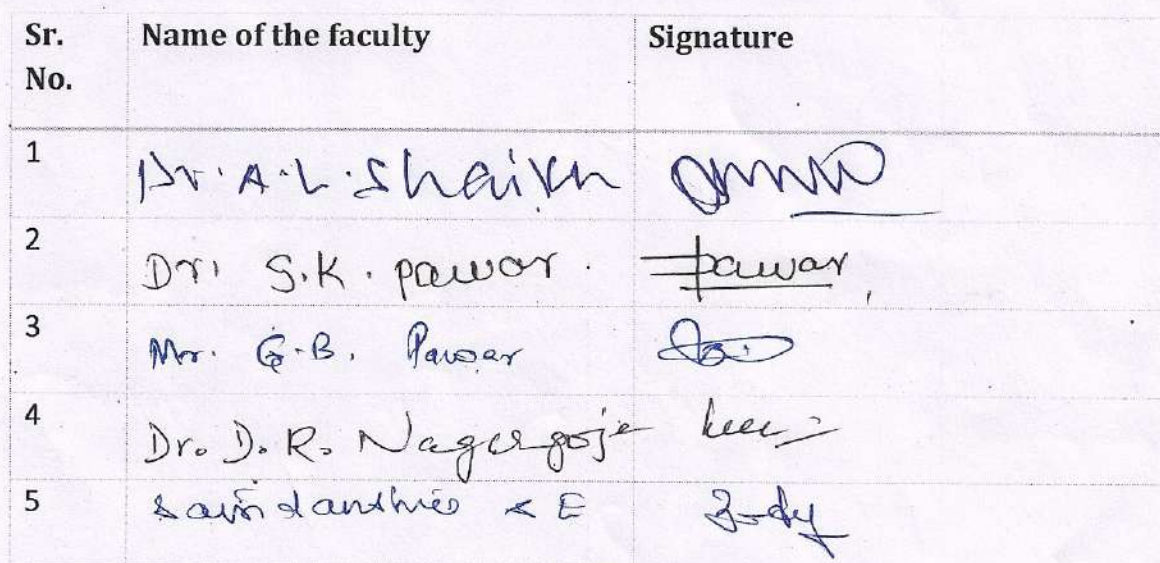 Sr. No. Name of the faculty Signature
1 Dr. A. L. Shaikh
2 Dr. S.K. Pawar. Pawar
3 Mr. G.B. Pawar
4 Dr. D. R. Nagargoje
5 S E